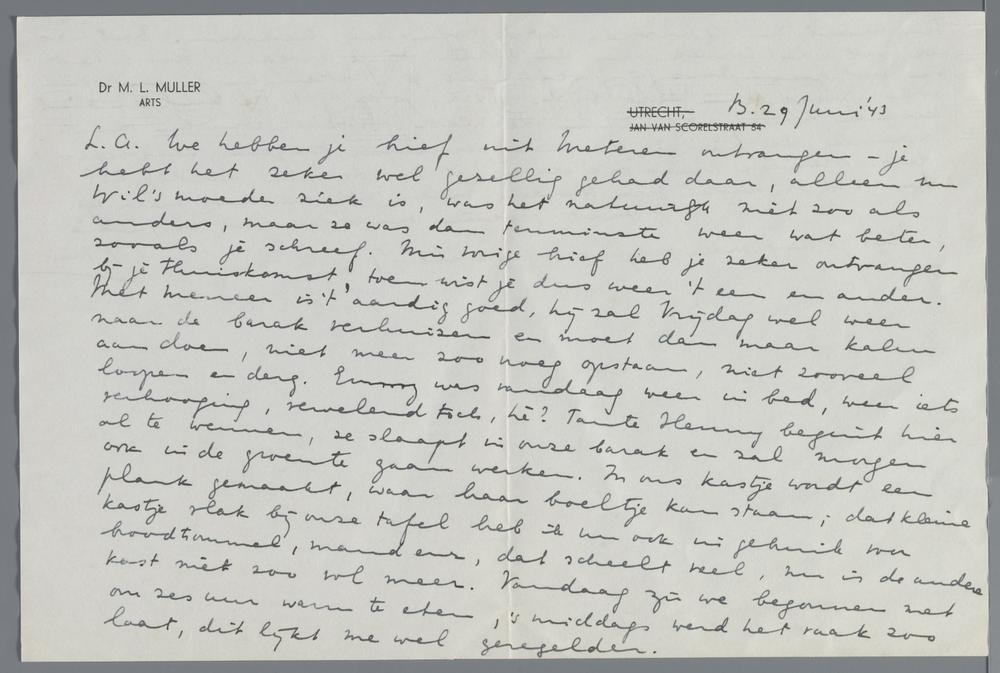 Dr M. L. MULLER
ARTS
UTRECHT,
JAN VAN SCORELSTRAAT 84
B. 29 Juni '43
L.A. We hebben je brief uit Meteren ontvangen – je
hebt het zeker wel gezellig gehad daar, alleen nu
Wil's moeder ziek is, was het natuurlijk niet zoo als
anders, maar ze was dan tenminste weer wat beter,
zooals je schreef. Mijn vorige brief heb je zeker ontvangen
bij je thuiskomst, toen wist je dus weer 't een en ander.
Met meneer is 't aardig goed, hij zal Vrijdag wel weer
naar de barak verhuizen en moet dan maar kalm
aan doen, niet meer zoo vroeg opstaan, niet zooveel
loopen en derg. Emmy was vandaag weer in bed, weer iets
verhooging, vervelend toch, hè? Tante Henny begint hier
al te wennen, ze slaapt in onze barak en zal morgen
ook in de groente gaan werken. In ons kastje wordt een
plank gemaakt, waar haar boeltje kan staan; dat kleine
kastje vlak bij onze tafel heb ik nu ook in gebruik voor
broodtrommel, mand enz, dat scheelt veel, nu is de andere
kast niet zoo vol meer. Vandaag zijn we begonnen met
om zes uur warm te eten, 's middags werd het vaak zoo
laat, dit lijkt me wel geregelder.